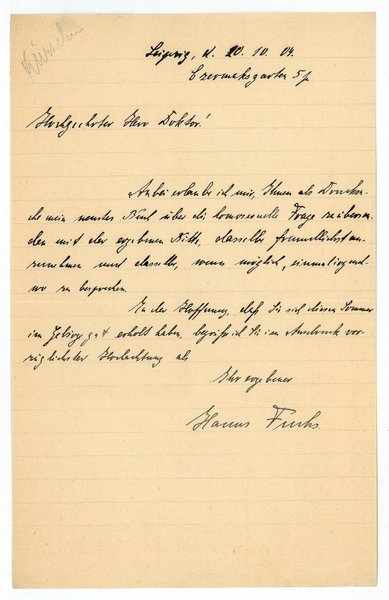 Leipzig, d. 20.10.04.
Czermaksgarten 5 I.
Hochgeehrter Herr Doktor!
Anbei erlaube ich mir, Ihnen als Drucksa-
che mein neustes Buch über die homosexuelle Frage zu übersen-
den mit der ergebenen Bitte, dasselbe freundlichst an-
zunehmen und dasselbe, wenn möglich, einmal irgend-
wo zu besprechen.
In der Hoffnung, daß Sie sich diesen Sommer
im Gebirge gut erholt haben, begrüße ich Sie im Ausdruck vor-
züglichster Hochachtung als
Ihr ergebener
Hanns Fuchs